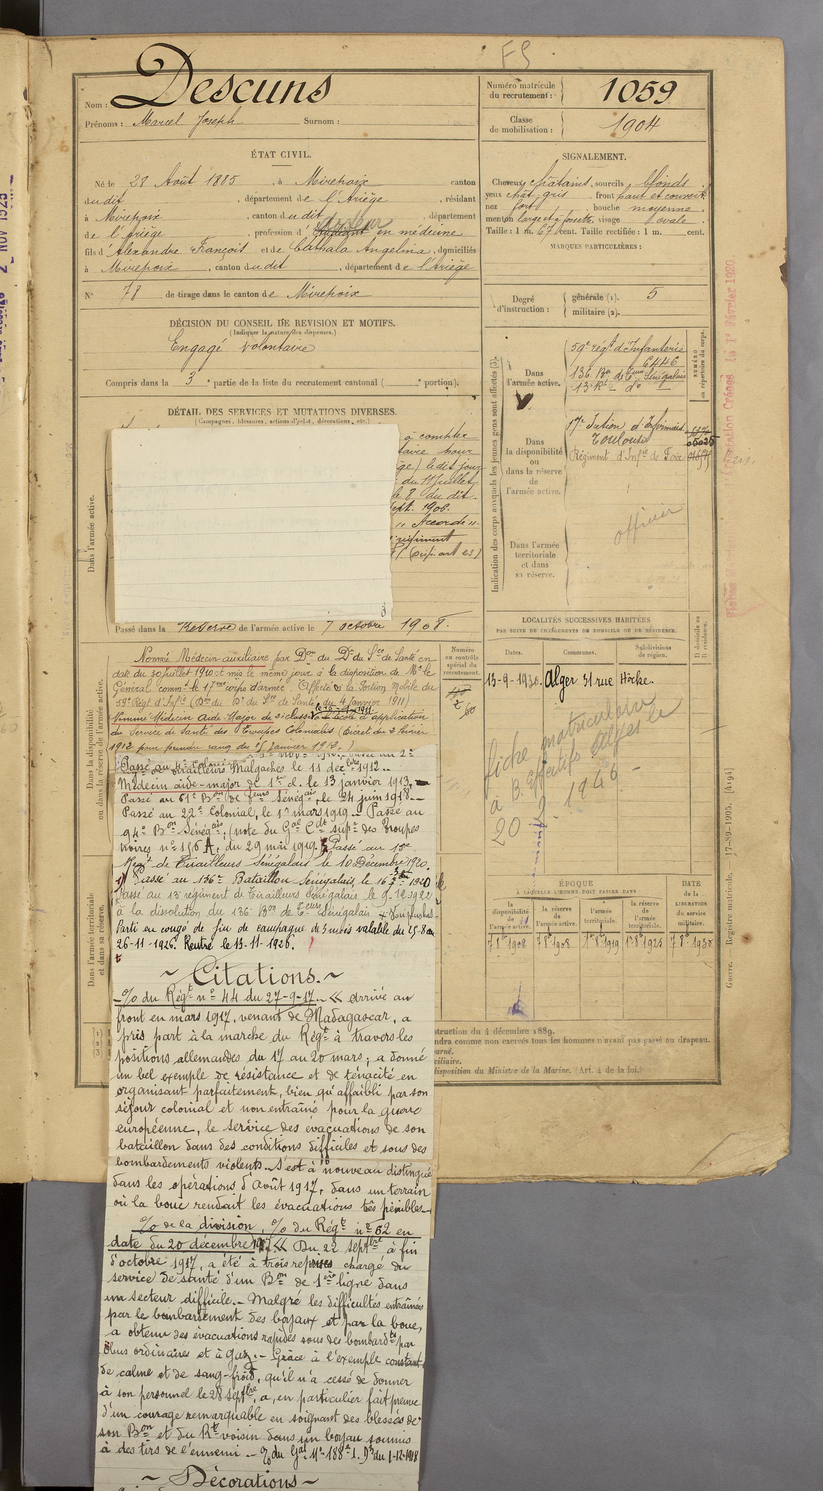 FS
Nom : Descuns
Prénoms : Marcel Joseph Surnom :
Numéro matricule du recrutement : 1059
Classe de mobilisation : 1904
ÉTAT CIVIL.
Né le 28 Août 1885, à Mirepoix canton
du dit, département de l'Ariège, résidant
à Mirepoix, canton du dit, département
de l'Ariège, profession d' en médecine
fils d'Alexandre François et de Cathala Angelina, domiciliés
à Mirepoix, canton du dit, département de l'Ariège
N° 78 de tirage dans le canton de Mirepoix
SIGNALEMENT.
Cheveux châtains, sourcils blonds
yeux chât. gris front haut et couvert
nez fort, bouche moyenne
menton large et à fossette, visage ovale
Taille : 1 m. 67 cent. Taille rectifiée : 1 m. cent.
MARQUES PARTICULIÈRES :
Degré d'instruction : générale (1). 5
militaire (2).
DÉCISION DU CONSEIL DE REVISION ET MOTIFS.
(Indiquer la nature des dispenses.)
Engagé volontaire
Compris dans la 3e partie de la liste du recrutement cantonal ( e portion).
DÉTAIL DES SERVICES ET MUTATIONS DIVERSES.
(Campagnes, blessures, actions d'éclat, décorations, etc.)
Dans l'armée active.
à compter
taire pour
ge) le dit jour
du 11 Juillet
le 8 du dit.
Sept. 1906.
Accordé
régiment
3
Passé dans la Réserve de l'armée active le 7 octobre 1908.
Indication des corps auxquels les jeunes gens sont affectés (3).
NUMÉRO au répertoire du corps.
Dans l'armée active.
59e régt d'Infanterie
6446
136 Bon de Teurs Sénégalais
13 Rt - do -
Dans la disponibilité ou dans la réserve de l'armée active.
17e Section d'Infirmiers
Toulouse
05025
Régiment d'Infie de Foix
Dans l'armée territoriale et dans sa réserve.
officier
LOCALITÉS SUCCESSIVES HABITÉES
PAR SUITE DE CHANGEMENTS DE DOMICILE OU DE RÉSIDENCE.
Dates. Communes. Subdivisions de région. D domicile ou R résidence.
13-9-1930. Alger 31 rue Hoche.
fiche matriculaire
à B. Effectifs Alger le
20 9 1946
Dans la disponibilité ou dans la réserve de l'armée active.
Numéro au contrôle spécial du recrutement.
Nommé Médecin auxiliaire par Don du Dr du Sce de Santé en
date du 30 juillet 1910 et mis le même jour à la disposition de Mr le
Général commt le 17me corps d'armée. Affecté à la Portion Mobile du
59e Régt d'Infanterie (Don du Dr du Sce de Santé du 4 Janvier 1911)
Nommé Médecin Aide Major de 2e classe à l'école d'application
du Service de Santé des Troupes Coloniales (Décret du 2 février
1912 pour prendre rang du 15 Janvier 1912.)
Passé au Tirailleurs Malgaches le 11 décbre 1912.
Médecin aide-major de 1re cl. le 13 janvier 1913.
Passé au 61e Bon de Teurs Sénégais le 24 juin 1918.
Passé au 22e Colonial, le 1er mars 1919. Passé au
94e Bon Sénégais (note du Gal Cdt supr des Troupes
noires no 156 A, du 29 mai 1919. Passé au 13e
Régt de Tirailleurs Sénégalais le 10 Décembre 1920.
Passé au 136e Bataillon Sénégalais le 16 1920
Passé au 13e régiment de Tirailleurs Sénégalais le 9-12-1922
à la dissolution du 136 Bon de Teurs Sénégalais
Parti en congé de fin de campagne de 3 mois valable du 25-8 au
26-11-1926. Rentré le 13-11-1926.
Dans l'armée territoriale et dans sa réserve.
ÉPOQUE
À LAQUELLE L'HOMME DOIT PASSER DANS
DATE de la LIBÉRATION du service militaire.
la disponibilité de l'armée active. la réserve de l'armée active. l'armée territoriale. la réserve de l'armée territoriale.
7 8e 1908 7 8e 1908 1er 8e 1919 1er 8e 1925 7 8e 1930
~ Citations. ~
O/ du Régt no 44 du 27-9-17. « arrivé au
front en mars 1917, venant de Madagascar, a
pris part à la marche du Régt à travers les
positions allemandes du 17 au 20 mars ; a donné
un bel exemple de résistance et de ténacité en
organisant parfaitement, bien qu'affaibli par son
séjour colonial et non entraîné pour la guerre
européenne, le service des évacuations de son
bataillon dans des conditions difficiles et sous des
bombardements violents. S'est à nouveau distingué
dans les opérations d'Août 1917, dans un terrain
où la boue rendait les évacuations très pénibles.
O/ de la division, O/ du Régt no 62 en
date du 20 décembre 1917 « Du 22 septbre à fin
d'octobre 1917, a été à trois reprises chargé du
service de santé d'un Bon de 1ère ligne dans
un secteur difficile. Malgré les difficultés entraînées
par le bombardement des boyaux et par la boue,
a obtenu des évacuations rapides sous des bombardts par
obus ordinaires et à gaz. Grâce à l'exemple constant
de calme et de sang-froid, qu'il n'a cessé de donner
à son personnel le 28 septbre, a, en particulier fait preuve
d'un courage remarquable en soignant des blessés de
son Bon et du Rt voisin dans un boyau soumis
à des tirs de l'ennemi.
~ Décorations ~
struction du 4 décembre 1889.
ndra comme non exercés tous les hommes n'ayant pas passé au drapeau.
urné.
xiliaire.
disposition du Ministre de la Marine. (Art. 4 de la loi.)
Guerre. — Registre matricule. 17-89-1905. [4194]